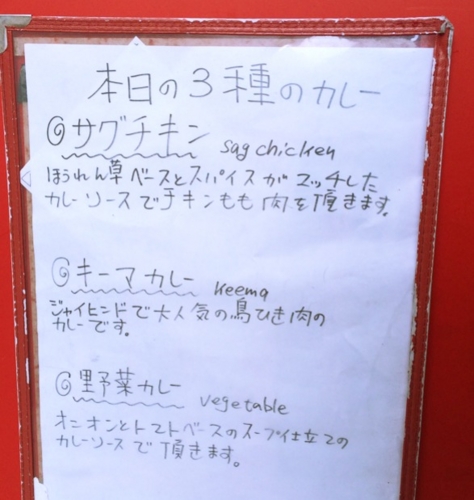 本日の3種のカレー
◎サグチキン sag chicken
ほうれん草ベースとスパイスがマッチした
カレーソースでチキンもも肉を頂きます。
◎キーマカレー keema
ジャイヒンドで大人気の鳥ひき肉の
カレーです。
◎野菜カレー vegetable
オニオンとトマトベースのスープ仕立ての
カレーソースで頂きます。